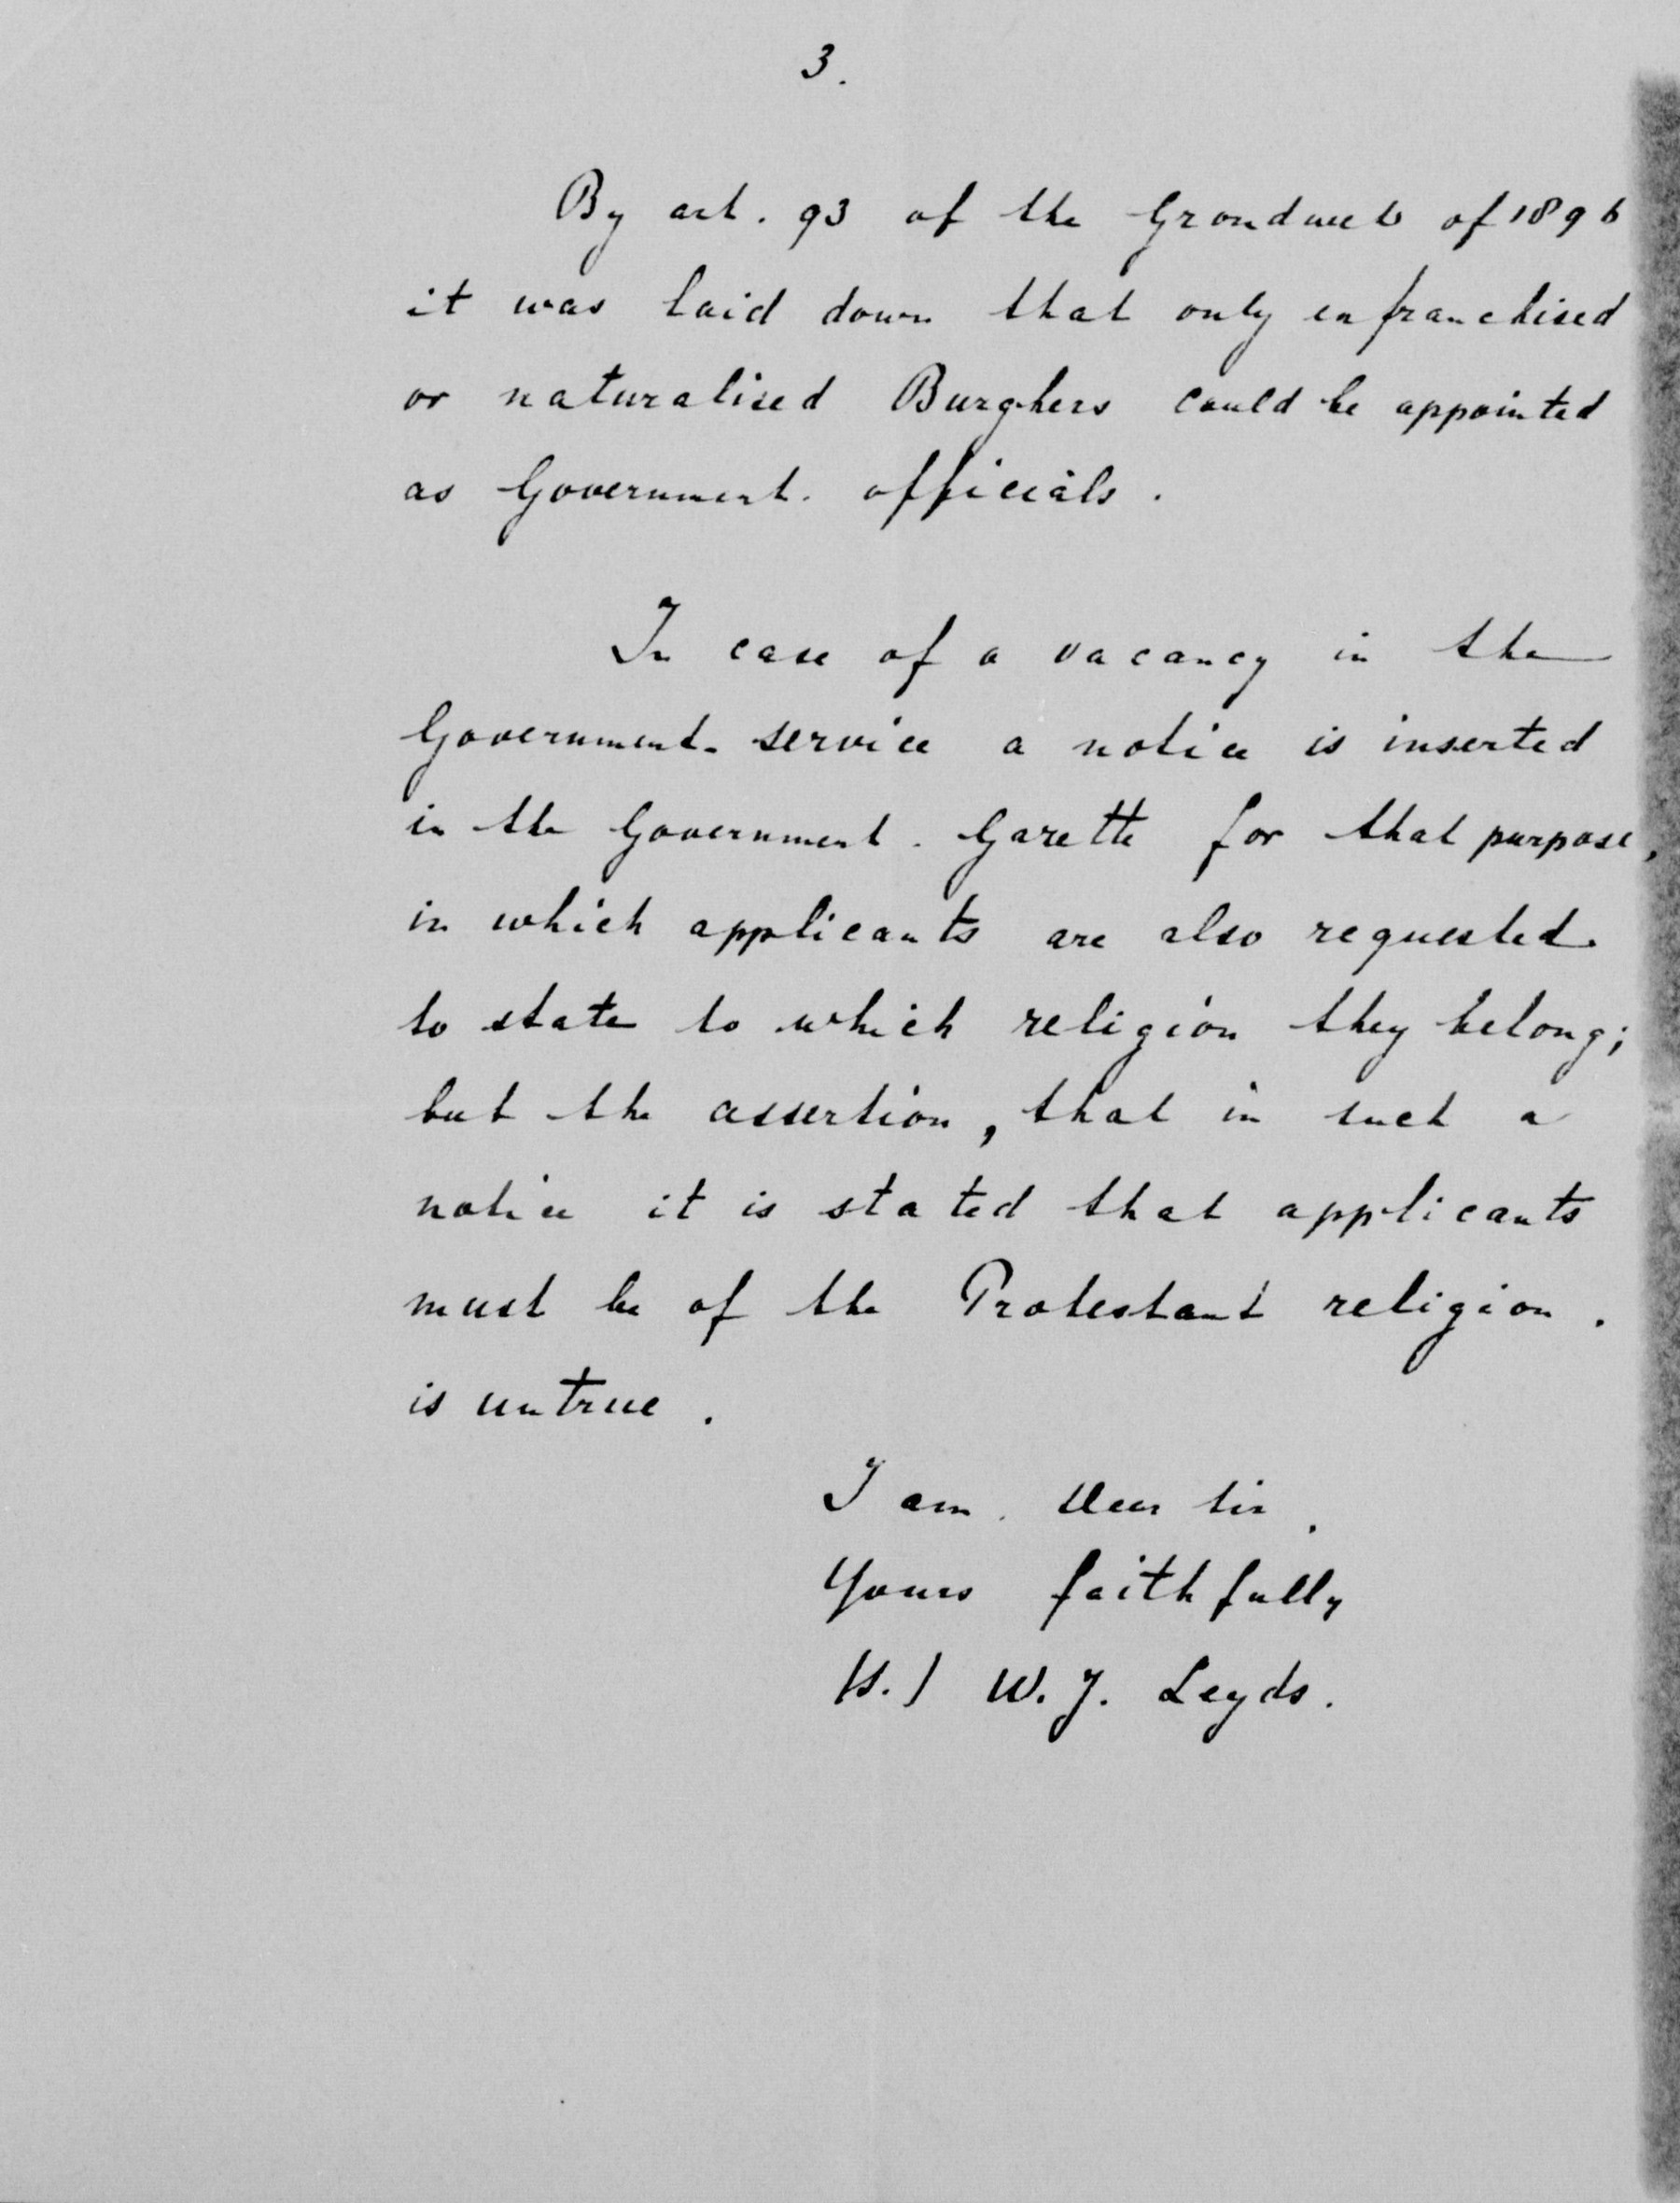 3.
By art. 93 of the Grondwet of 1896
it was laid down that only enfranchised
or naturalised Burghers could be appointed
as Government officials.
In case of a vacancy in the
Government service a notice is inserted
in the Government Gazette for that purpose,
in which applicants are also requested
to state to which religion they belong;
but the assertion, that in such a
notice it is stated that applicants
must be of the Protestant religion.
is untrue.
I am, Dear Sir,
Yours faithfully
(S.) W.J. Leyds.